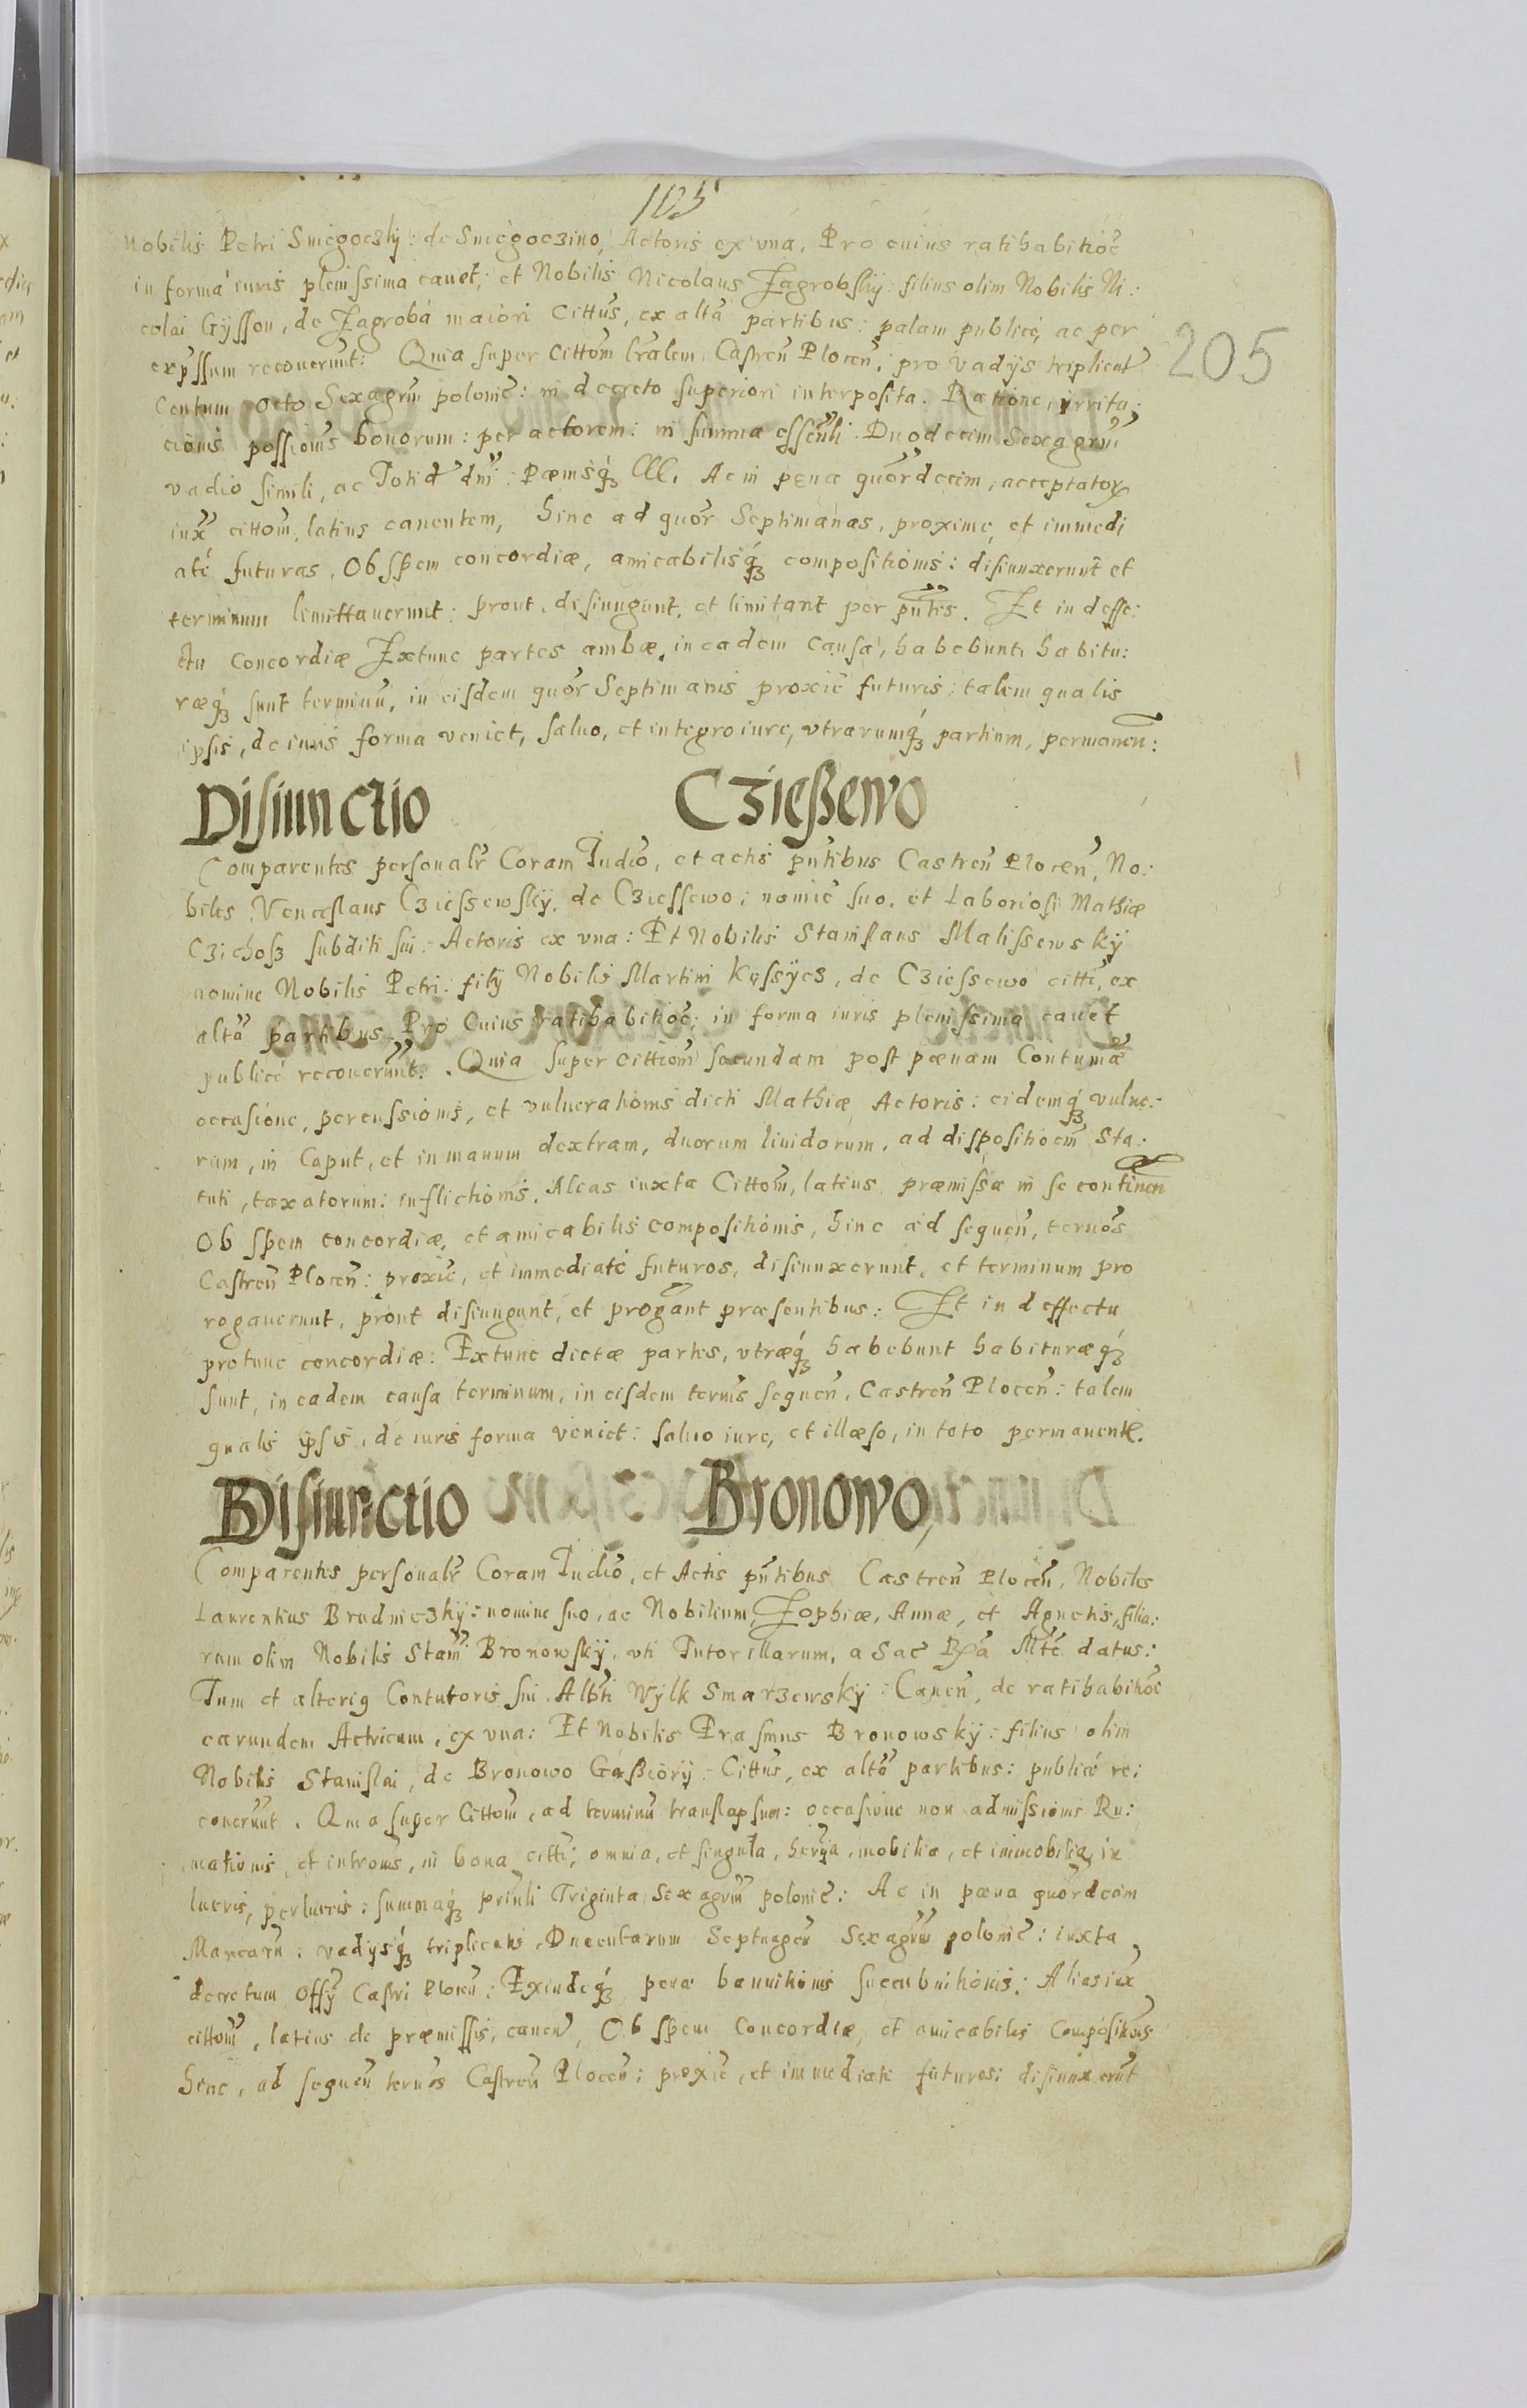 105
205
Nobilis Petri Sniegoczky: de Sniegoczino, Actoris ex vna. Pro cuius ratihabitioē
in forma iuris plenissima cauet; et Nobilis Nicolaus Zagrobsky: filius olim Nobilis Ni:
colai Gÿsson, de Zagrobá maiori Cittūs, ex altā partibus: palam publicè, ac per
exp̄ssum recouerunt: Quia super Cittom̄ lr̄alem Castren̄ Plocen̄: pro Vadÿs triplicat̄
Centum octo Sexagrm̄ polonic̄: in decreto superiori interposita. Ratione irrita:
cionis possionis bonorum: per actorem: in summa essen̄li Duodecim Sexagrm̄
vadio simili, ac Totid̄ dn̄i: Pæmisq́ꝫ Ac in pena quordecim, acceptator
iux̄ cittom̄, latius canentem, hinc ad quor̄ Septimanas, proxime, et immedi
até futuras, Ob spem concordiæ, amicabilisq́ꝫ compositionis: disiunxerunt et
terminum limittauerunt: prout, disiungunt, et limitant per pn̄tes. Et in deffe:
ctu Concordiæ Extunc partes ambæ, in eadem Causa, habebunt, habitu:
ræq́ꝫ sunt terminū, in eisdem quor̄ Septimanis proxiē futuris: talem qualis
ipsis, de iuris forma veniet, saluo, et integro iure, vtrarumq́ꝫ partium, permanen̄:
Disiunctio Cziessewo
Comparentes personalr̄ Coram Iudiō, et actis pn̄tibus Castren̄ Plocen̄, No:
biles Venceslaus Cziessewsky, de Cziessewo: nomiē suo, et Laboriosi Mathiæ
Czichosz subditi sui: Actoris ex vna: Et Nobilis Stanislaus Malissewsky
nomine Nobilis Petri: filÿ Nobilis Martini Kęssÿcs, de Cziessewo citti, ex
altā partibus. Pro Cuius ratihabitioē: in forma iuris plenissima cauet
publicè recouerunt: Quia super cittiom̄ secundam post pœnam Contumæ
occasione, percussionis, et vulnerationis dicti Mathiæ Actoris: eidemq́ꝫ vulne:
rum, in Caput, et in manum dextram, duorum liuidorum, ad dispositioem̄ Sta:
tuti, taxatorum: inflictionis. Alias iuxta Cittom̄, latius præmissa in se continen̄
Ob spem concordiæ, et amicabilis compositionis, hinc ad sequen̄, termōs
Castren̄ Plocen̄: proxiē, et immediaté futuros, disiunxerunt, et terminum pro
rogauerunt, prout disiungunt, et progāant præsentibus: Et in deffectu
protunc concordiæ: Extunc dictæ partes, vtræq́ꝫ habebunt habituræq́ꝫ
sunt, in eadem causa terminum, in eisdem termis sequen̄, Castren̄ Plocen̄: talem
qualis ipsis, de iuris forma veniet: saluo iure, et illæso, in toto permanente.
Disiunctio Bronowo,
Comparentes personalr̄ Coram Iudiō, et Actis pn̄tibus Castren̄ Plocen̄, Nobiles
Laurentius Brudniczky: nomine suo, ac Nobilium, Zophiæ, Annæ, et Agnetis, filia:
rum olim Nobilis Stan̄ Bronowsky, vti Tutor illarum, a Sac̄ Rā Mtē datus:
Tum et alterig Contutoris sui Albti Wÿlk Smarzewsky: Cauen̄, de ratihabitiōe
earundem Actricum, ex vna: Et Nobilis Erasmus Bronowsky: filius olim
Nobilis Stanislai, de Bronowo Gąssiorÿ: Cittūs, ex altā partibus: publicè re:
conerunt. Quia super Cittom̄, ad terminū translapsum: occasione non admissionis Ru:
mationis, et intrōmis, in bona citti; omnia, et singula, hærÿa, mobilia, et immobilia, in
lucris, perlucris: summaq́ꝫ prinli Triginta Sexagrm̄ polonic̄: Ac in pœna quordecim
Marcarū: vadÿsq́ꝫ triplicatis Ducentarum Septuagen̄ Sexagrm̄ polonic̄: iuxta
decretum Offÿ Castri Plocen̄: Exindeq́ꝫ pœnæ bannitionis succubuitionis: Alias iux̄
cittom̄, latius de præmissis, canen̄, Ob spem Concordiæ, et amicabilis Compositionis
hinc, ad sequen̄ termōs Castren̄ Plocen̄: proxiē, et immediate futuros: disiunxerūt